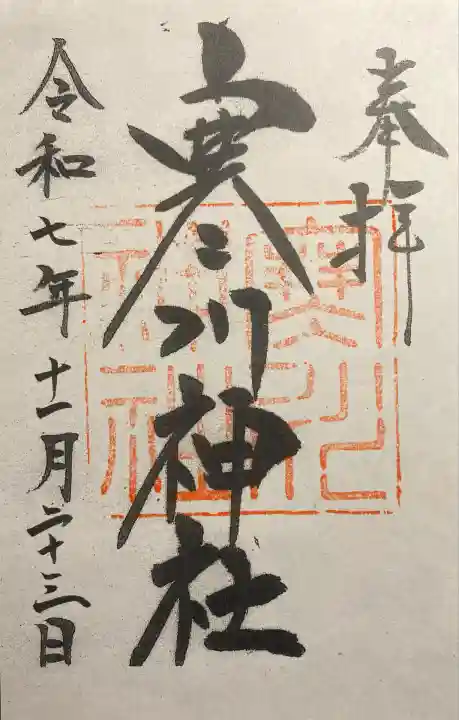 奉拝
寒川神社
令和七年十一月二十三日
寒川
神社